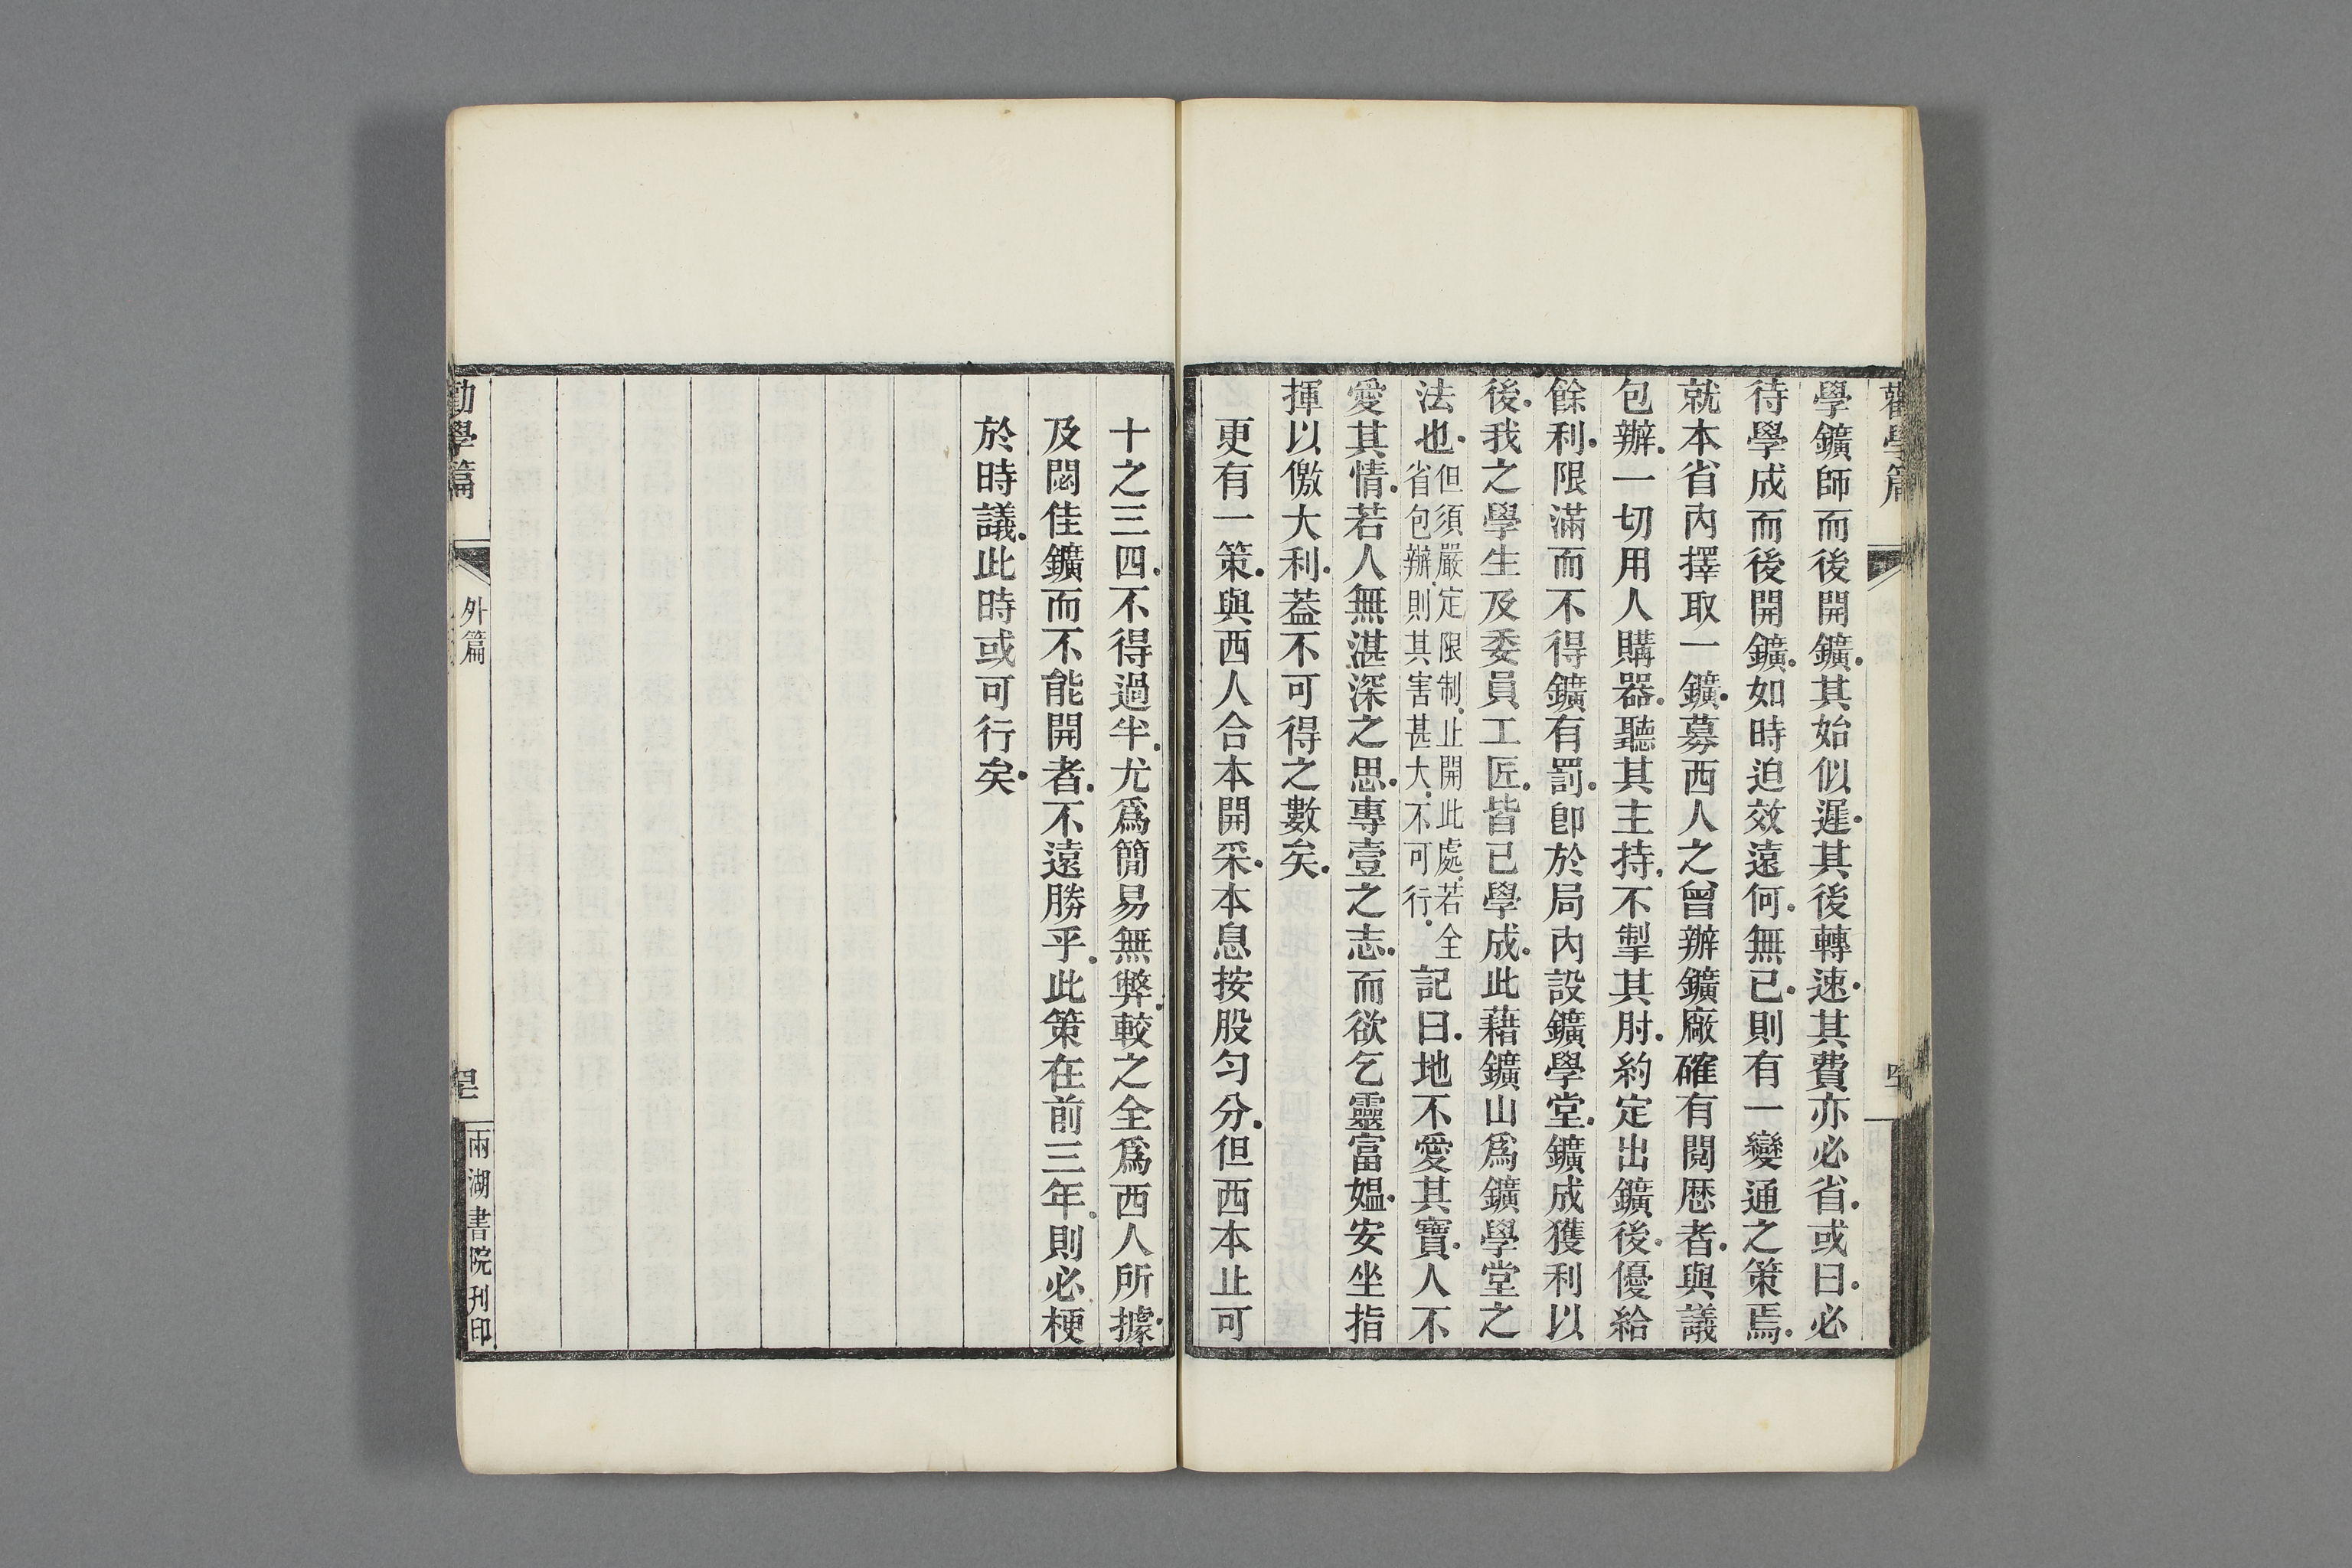 勸學篇
學鑛師而後開鑛其始似遲其後轉速其費亦必省或曰必
待學成而後開鑛如時迫效遠何無已則有一變通之策焉
就本省內擇取一鑛募西人之曾辦鑛廠確有閱歷者與議
包辦一切用人購器聽其主持不掣其肘約定出鑛後優給
餘利限滿而不得鑛有罰卽於局內設鑛學堂鑛成獲利以
後我之學生及委員工匠皆已學成此藉鑛山爲鑛學堂之
法也但須嚴定限制止開此處若全省包辦則其害甚大不可行記曰地不愛其寶人不
愛其情若人無湛深之思專壹之志而欲乞靈富媼安坐指
揮以徼大利蓋不可得之數矣
更有一策與西人合本開采本息按股勻分但西本止可
十之三四不得過半尤爲簡易無弊較之全爲西人所據
及閟佳鑛而不能開者不遠勝乎此策在前三年則必梗
於時議此時或可行矣
勸學篇
外篇
兩湖書院刊印